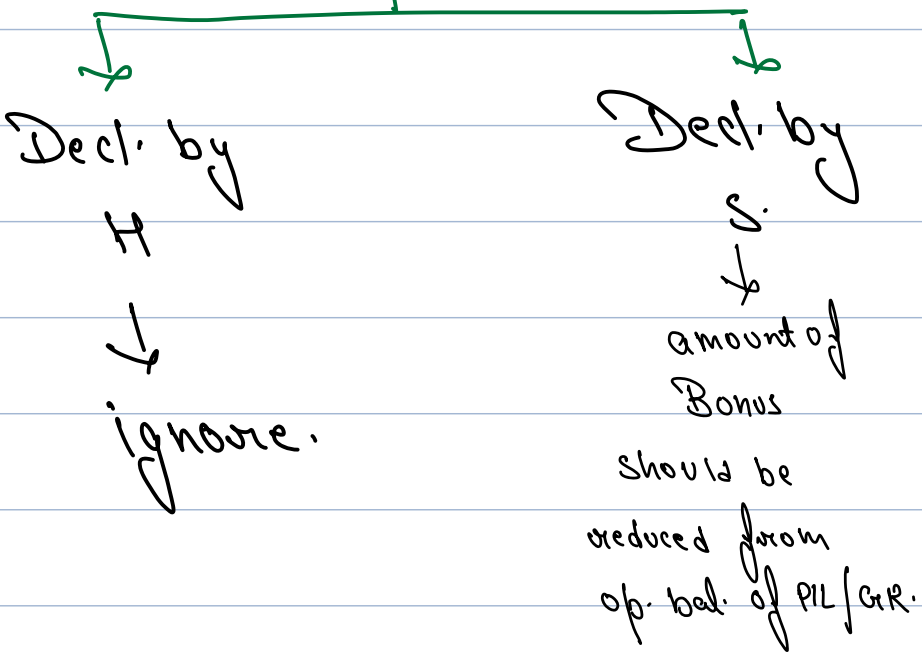 Decl. by
H
ignore.
Decl. by
S.
amount of
Bonus
should be
reduced from
op. bal. of P/L/GR.